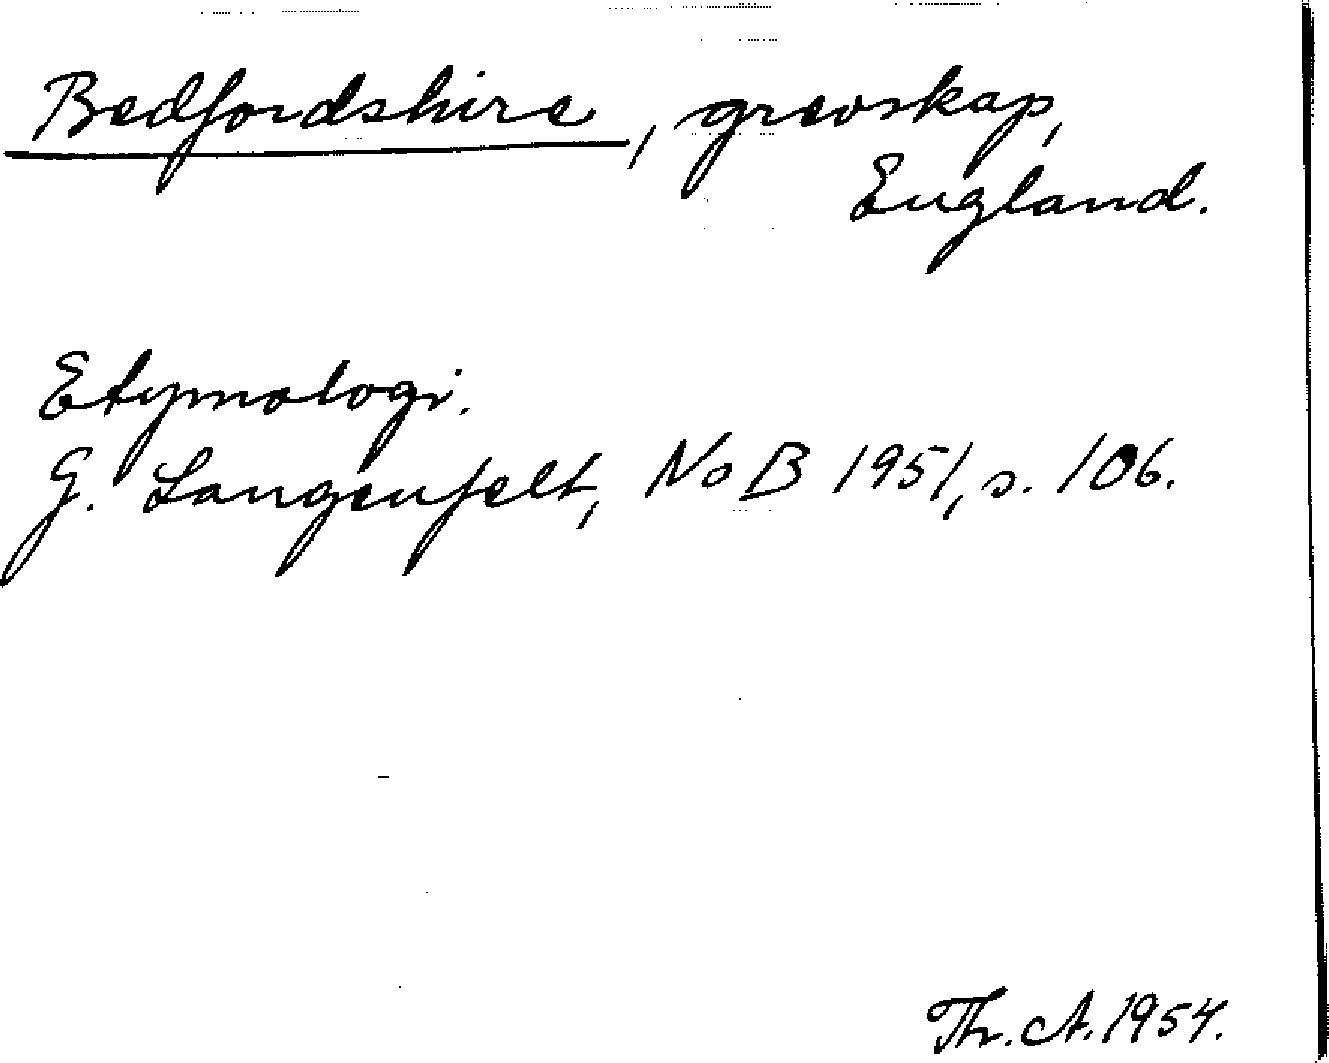 Bedfordshire, grevskap,
England.
Etymologi.
G. Langenfelt, NoB 1951, s. 106.
Th. A. 1954.